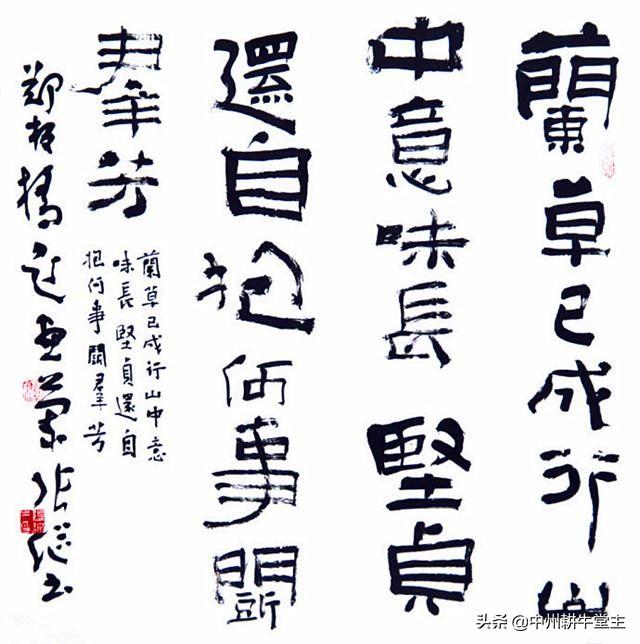 蘭草已成行山
中意味長堅貞
還自抱何事鬭
羣芳
蘭草已成行山中意
味長堅貞還自
抱何事鬭羣芳
鄭板橋題畫蘭 張繼書
头条 @中州耕牛堂主